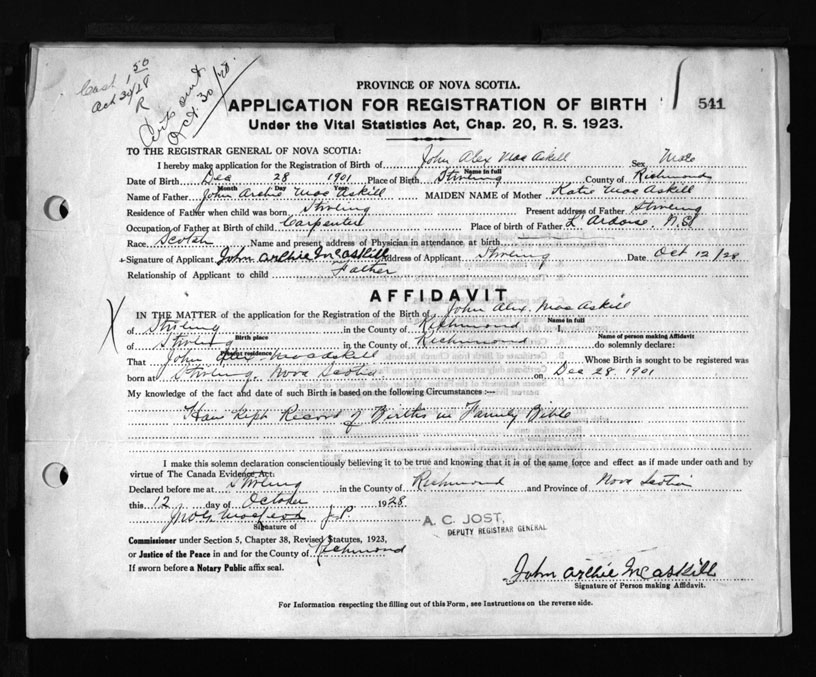 Cash 1.50
Oct 30/28
R
Cert sent
Oct. 30/28
PROVINCE OF NOVA SCOTIA.
APPLICATION FOR REGISTRATION OF BIRTH 541
Under the Vital Statistics Act, Chap. 20, R. S. 1923.
TO THE REGISTRAR GENERAL OF NOVA SCOTIA:
I hereby make application for the Registration of Birth of John Alex MacAskill Sex Male
Name in full
Date of Birth Dec 28 1901 Place of Birth Stirling County of Richmond
Month Day Year
Name of Father John Archie MacAskill MAIDEN NAME of Mother Katie MacAskill
Residence of Father when child was born Stirling Present address of Father Stirling
Occupation of Father at Birth of child Carpenter Place of birth of Father L'Ardoise N.S.
Race Scotch Name and present address of Physician in attendance at birth
Signature of Applicant John Archie McCaskill Address of Applicant Stirling Date Oct 12/28
Relationship of Applicant to child Father
AFFIDAVIT
IN THE MATTER of the application for the Registration of the Birth of John Alex. MacAskill
Name in full
X of Stirling in the County of Richmond I,
Birth place Name of person making Affidavit
of Stirling in the County of Richmond do solemnly declare:
Present residence
That John Alex MacAskill Whose Birth is sought to be registered was
born at Stirling, Nova Scotia on Dec 28 1901
My knowledge of the fact and date of such Birth is based on the following Circumstances :—
Have Kept Record of Births in Family Bible
I make this solemn declaration conscientiously believing it to be true and knowing that it is of the same force and effect as if made under oath and by
virtue of The Canada Evidence Act:
Declared before me at Stirling in the County of Richmond and Province of Nova Scotia
this 12 day of October 1928
MacLeod J.P.
Signature of
A. C. JOST,
DEPUTY REGISTRAR GENERAL
Commissioner under Section 5, Chapter 38, Revised Statutes, 1923,
or Justice of the Peace in and for the County of Richmond
If sworn before a Notary Public affix seal.
John Archie McCaskill
Signature of Person making Affidavit.
For Information respecting the filling out of this Form, see Instructions on the reverse side.